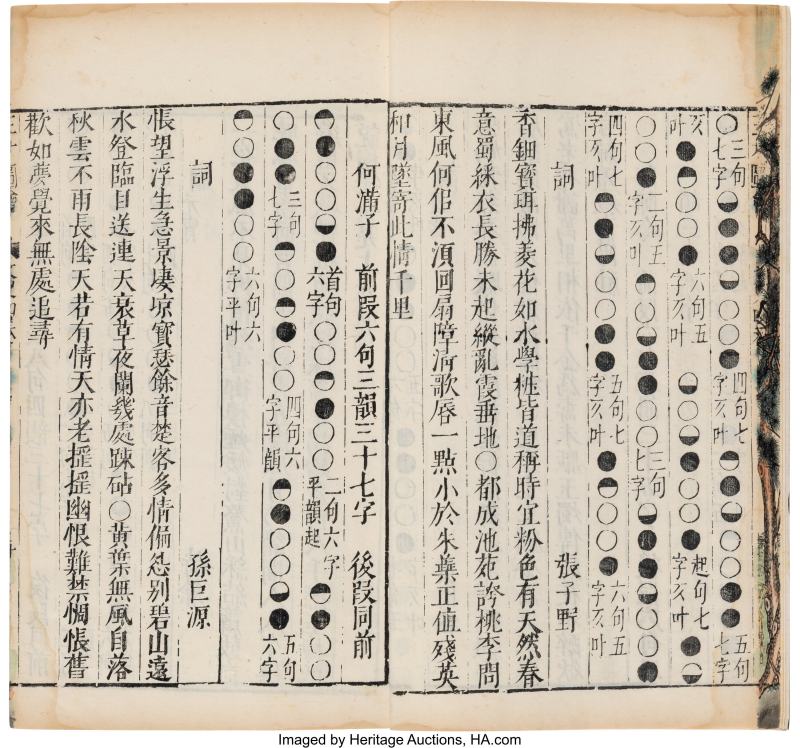 三句七字 四句七字亥叶 五句七字
亥叶 六句五字亥叶 起句七字亥叶
二句五字亥叶 三句七字
四句七字亥叶 五句七字亥叶 六句五字亥叶
詞 張子野
香鈿寶珥拂菱花如水學粧皆道稱時宜粉色有天然春
意蜀綵衣長勝未起縱亂霞垂地○都成池苑誇桃李問
東風何佀不湏回扇障清歌唇一點小於朱蘂正值殘英
和月墜寄此情千里
何滿子 前段六句三韻三十七字 後段同前
首句六字 二句六字平韻起
三句七字 四句六字平韻 五句六字
六句六字平叶
詞 孫巨源
悵望浮生急景凄凉寳瑟餘音楚客多情偏怨别碧山遠
水登臨目送連天衰草夜闌幾處踈砧○黃葉無風自落
秋雲不雨長陰天若有情天亦老揺揺幽恨難禁惆悵舊
歡如夢覺來無處追尋
Imaged by Heritage Auctions, HA.com